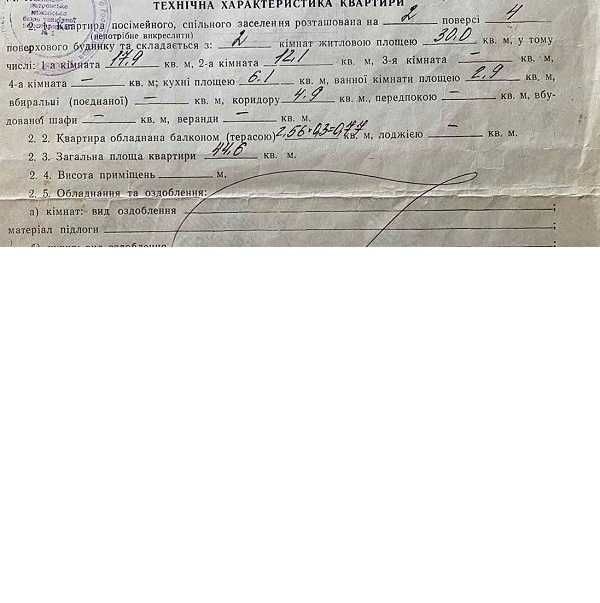 ТЕХНІЧНА ХАРАКТЕРИСТИКА КВАРТИРИ
2. 1. Квартира посімейного, спільного заселення розташована на 2 поверсі 4
(непотрібне викреслити)
поверхового будинку та складається з: 2 кімнат житловою площею 30.0 кв. м, у тому
числі: 1-а кімната 17.9 кв. м, 2-а кімната 12.1 кв. м, 3-я кімната — кв. м,
4-а кімната — кв. м; кухні площею 6.1 кв. м, ванної кімнати площею 2.9 кв. м,
вбиральні (поєднаної) — кв. м, коридору 4.9 кв. м., передпокою — кв. м, вбу-
дованої шафи — кв. м, веранди — кв. м.
2. 2. Квартира обладнана балконом (терасою) 2,56·0,3=0,77 кв. м, лоджією — кв. м.
2. 3. Загальна площа квартири 44.6 кв. м.
2. 4. Висота приміщень м.
2. 5. Обладнання та оздоблення:
а) кімнат: вид оздоблення ;
матеріал підлоги ;